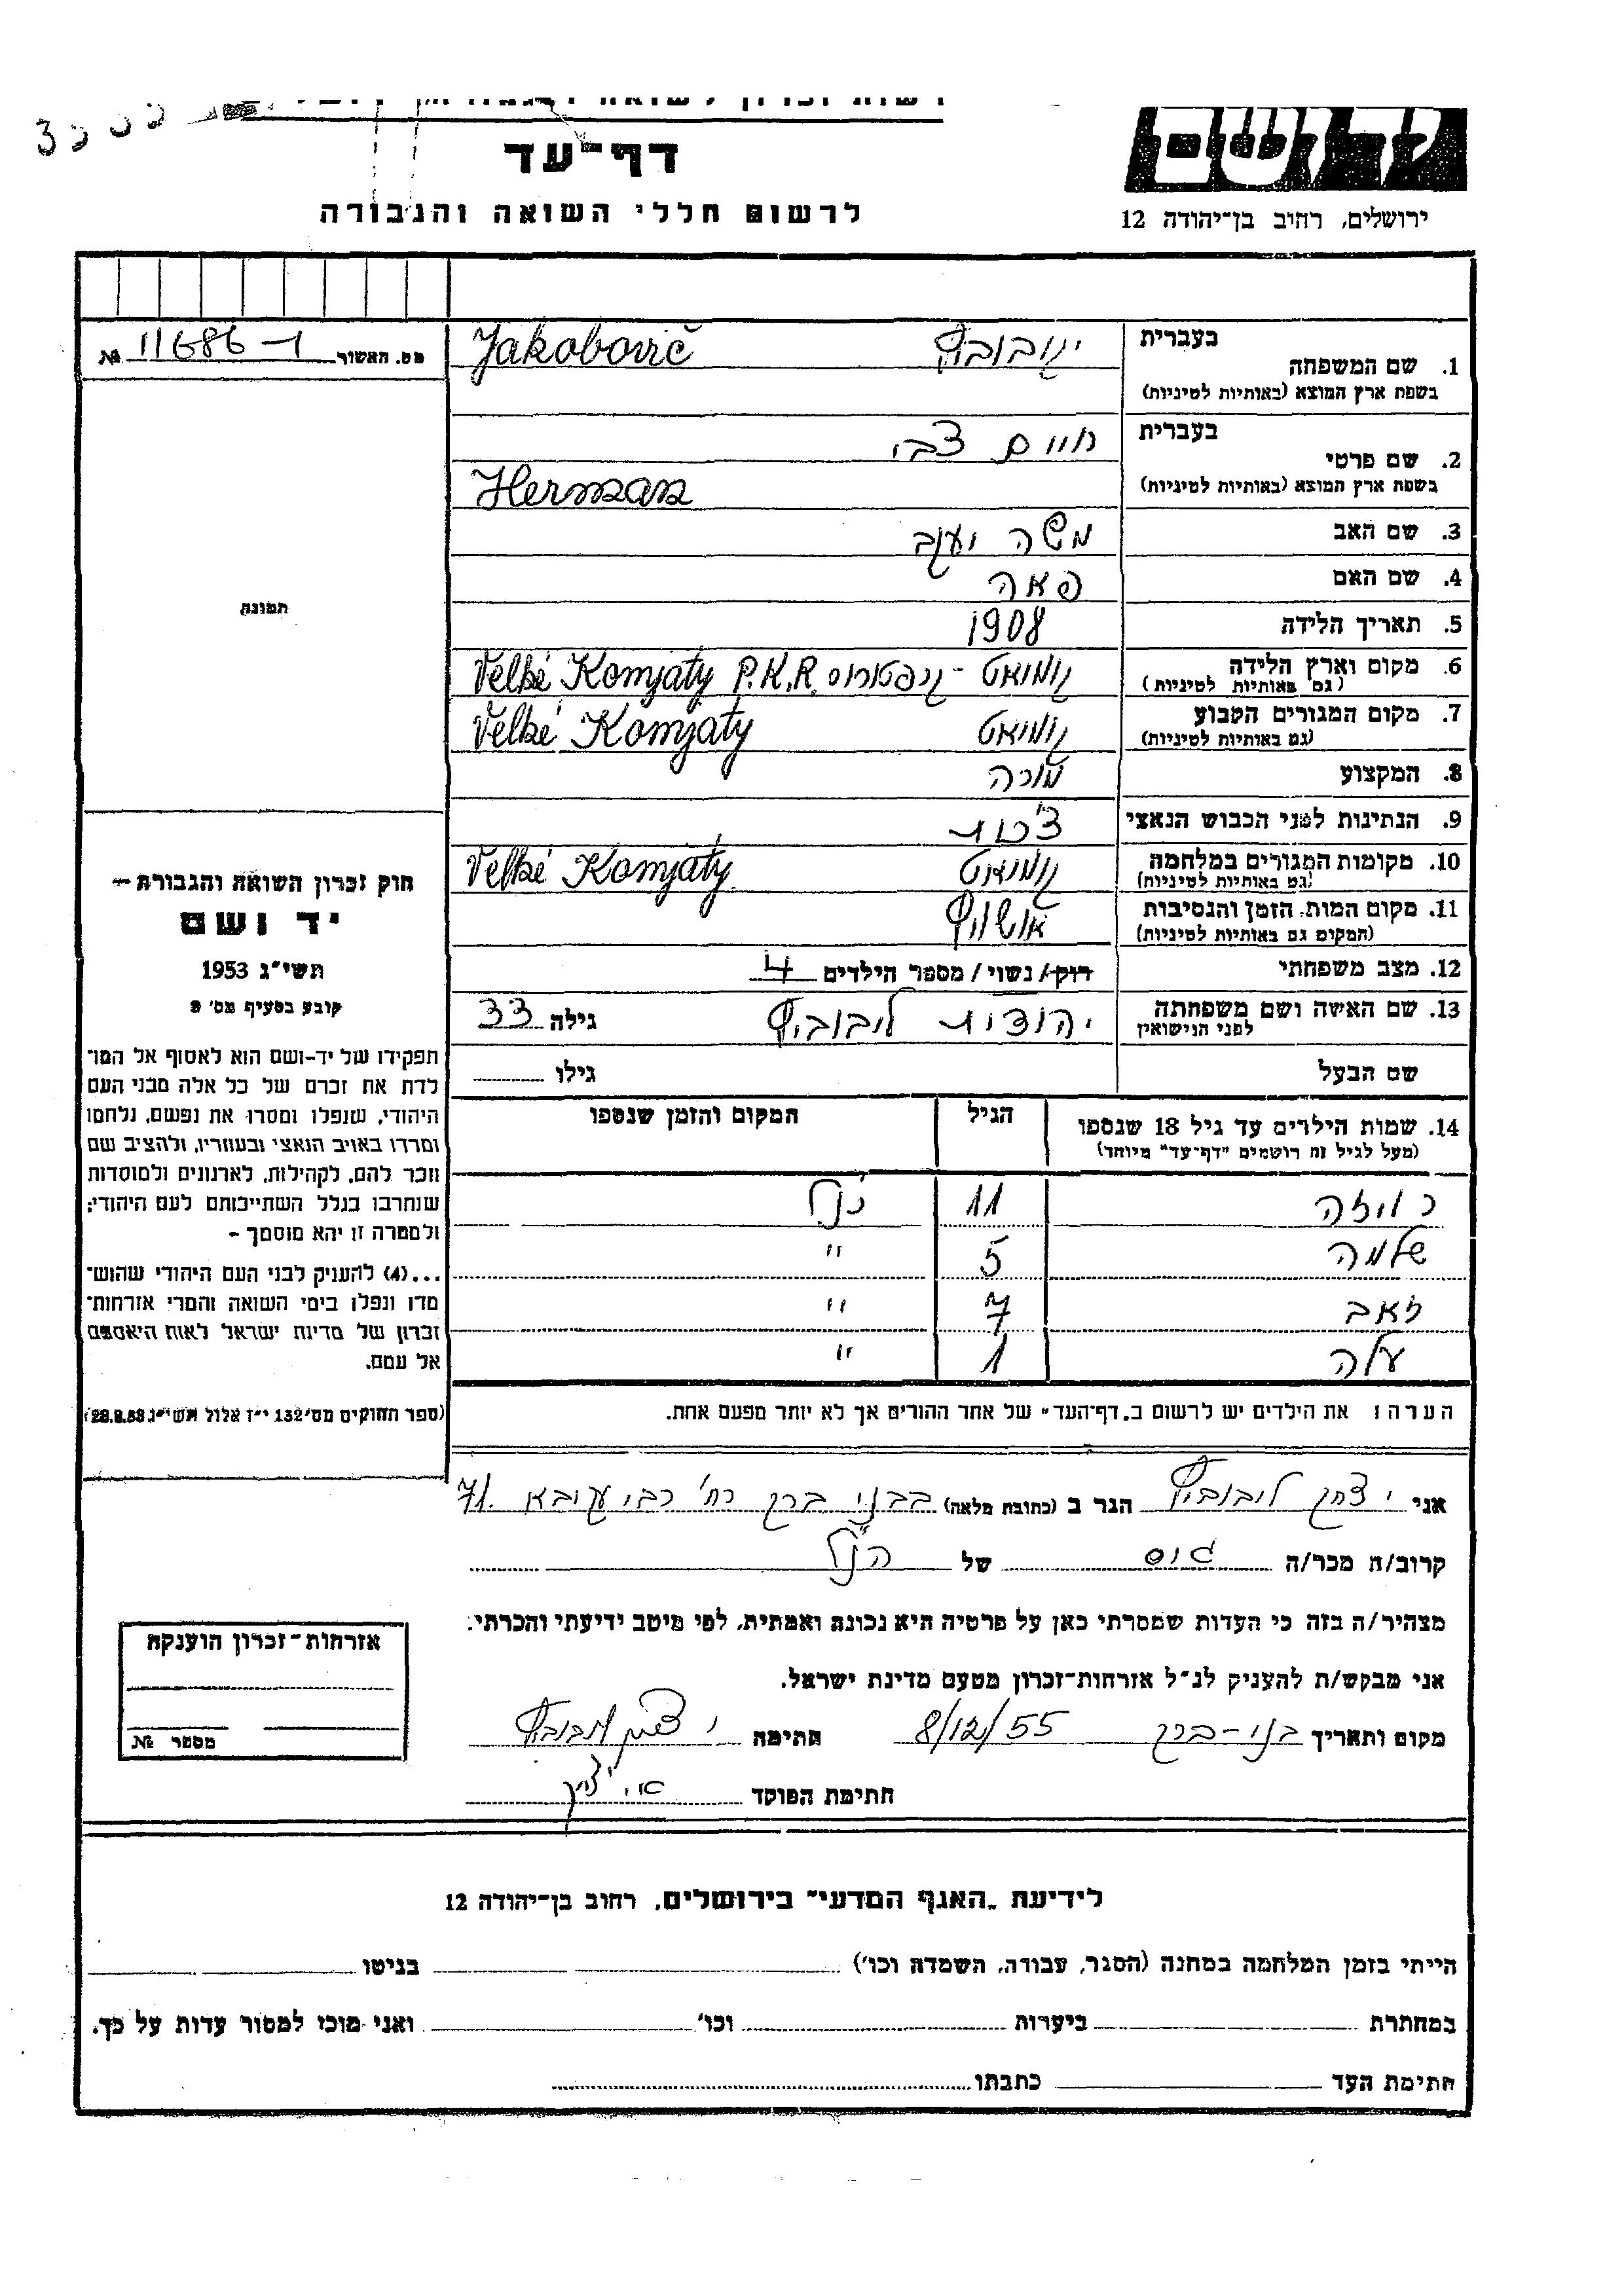 דף-עד
לרשום חללי השואה והגבורה
יד ושם
ירושלים, רחוב בן-יהודה 12
מס. האשור 11686-1 №
תמונה
בעברית יקובוביץ
1. שם המשפחה
בשפת ארץ המוצא (באותיות לטיניות) Jakobovič
בעברית חיים צבי
2. שם פרטי
בשפת ארץ המוצא (באותיות לטיניות) Herman
3. שם האב משה יעקב
4. שם האם
5. תאריך הלידה 1908
6. מקום וארץ הלידה קומיאט - קרפטורוס Velké Komjaty P.K.R.
(גם באותיות לטיניות)
7. מקום המגורים הקבוע קומיאט Velké Komjaty
(גם באותיות לטיניות)
8. המקצוע מורה
9. הנתינות לפני הכבוש הנאצי צ'כית
10. מקומות המגורים במלחמה קומיאט Velké Komjaty
(גם באותיות לטיניות)
11. מקום המות, הזמן והנסיבות אושוויץ
(המקום גם באותיות לטיניות)
12. מצב משפחתי רוק/ נשוי / מספר הילדים 4
13. שם האשה ושם משפחתה יהודית ליבוביץ גילה 33
לפני הנישואין
שם הבעל גילו
14. שמות הילדים עד גיל 18 שנספו הגיל המקום והזמן שנספו
(מעל לגיל זה רושמים "דף-עד" מיוחד)
רויזה 11 כנ"ל
שלמה 5 "
זאב 7 "
1 "
הערה: את הילדים יש לרשום ב"דף-העד" של אחד ההורים אך לא יותר מפעם אחת.
חוק זכרון השואה והגבורה –
יד ושם
תשי"ג 1953
קובע בסעיף מס' 2
תפקידו של יד-ושם הוא לאסוף אל המו־
לדת את זכרם של כל אלה מבני העם
היהודי, שנפלו ומסרו את נפשם, נלחמו
ומרדו באויב הנאצי ובעוזריו, ולהציב שם
וזכר להם, לקהילות, לארגונים ולמוסדות
שנחרבו בגלל השתייכותם לעם היהודי;
ולמטרה זו יהא מוסמך –
...(4) להעניק לבני העם היהודי שהוש־
מדו ונפלו בימי השואה והמרי אזרחות־
זכרון של מדינת ישראל לאות היאספם
אל עמם.
(ספר החוקים מס' 132 י"ז אלול תשי"ג 28.8.53)
אני יצחק ליבוביץ הגר ב (כתובת מלאה) בבני ברק רח' רבי עקיבא 71.
קרוב/ת מכר/ה גיס של הנ"ל
מצהיר/ה בזה כי העדות שמסרתי כאן על פרטיה היא נכונה ואמתית, לפי מיטב ידיעתי והכרתי.
אני מבקש/ת להעניק לנ"ל אזרחות-זכרון מטעם מדינת ישראל.
מקום ותאריך בני-ברק 8/12/55 חתימה יצחק ליבוביץ
חתימת הפוקד
אזרחות-זכרון הוענקה
מספר №
לידיעת "האגף המדעי" בירושלים, רחוב בן-יהודה 12
הייתי בזמן המלחמה במחנה (הסגר, עבודה, השמדה וכו') בגיטו
במחתרת ביערות וכו' ואני מוכן למסור עדות על כך.
חתימת העד כתבתו